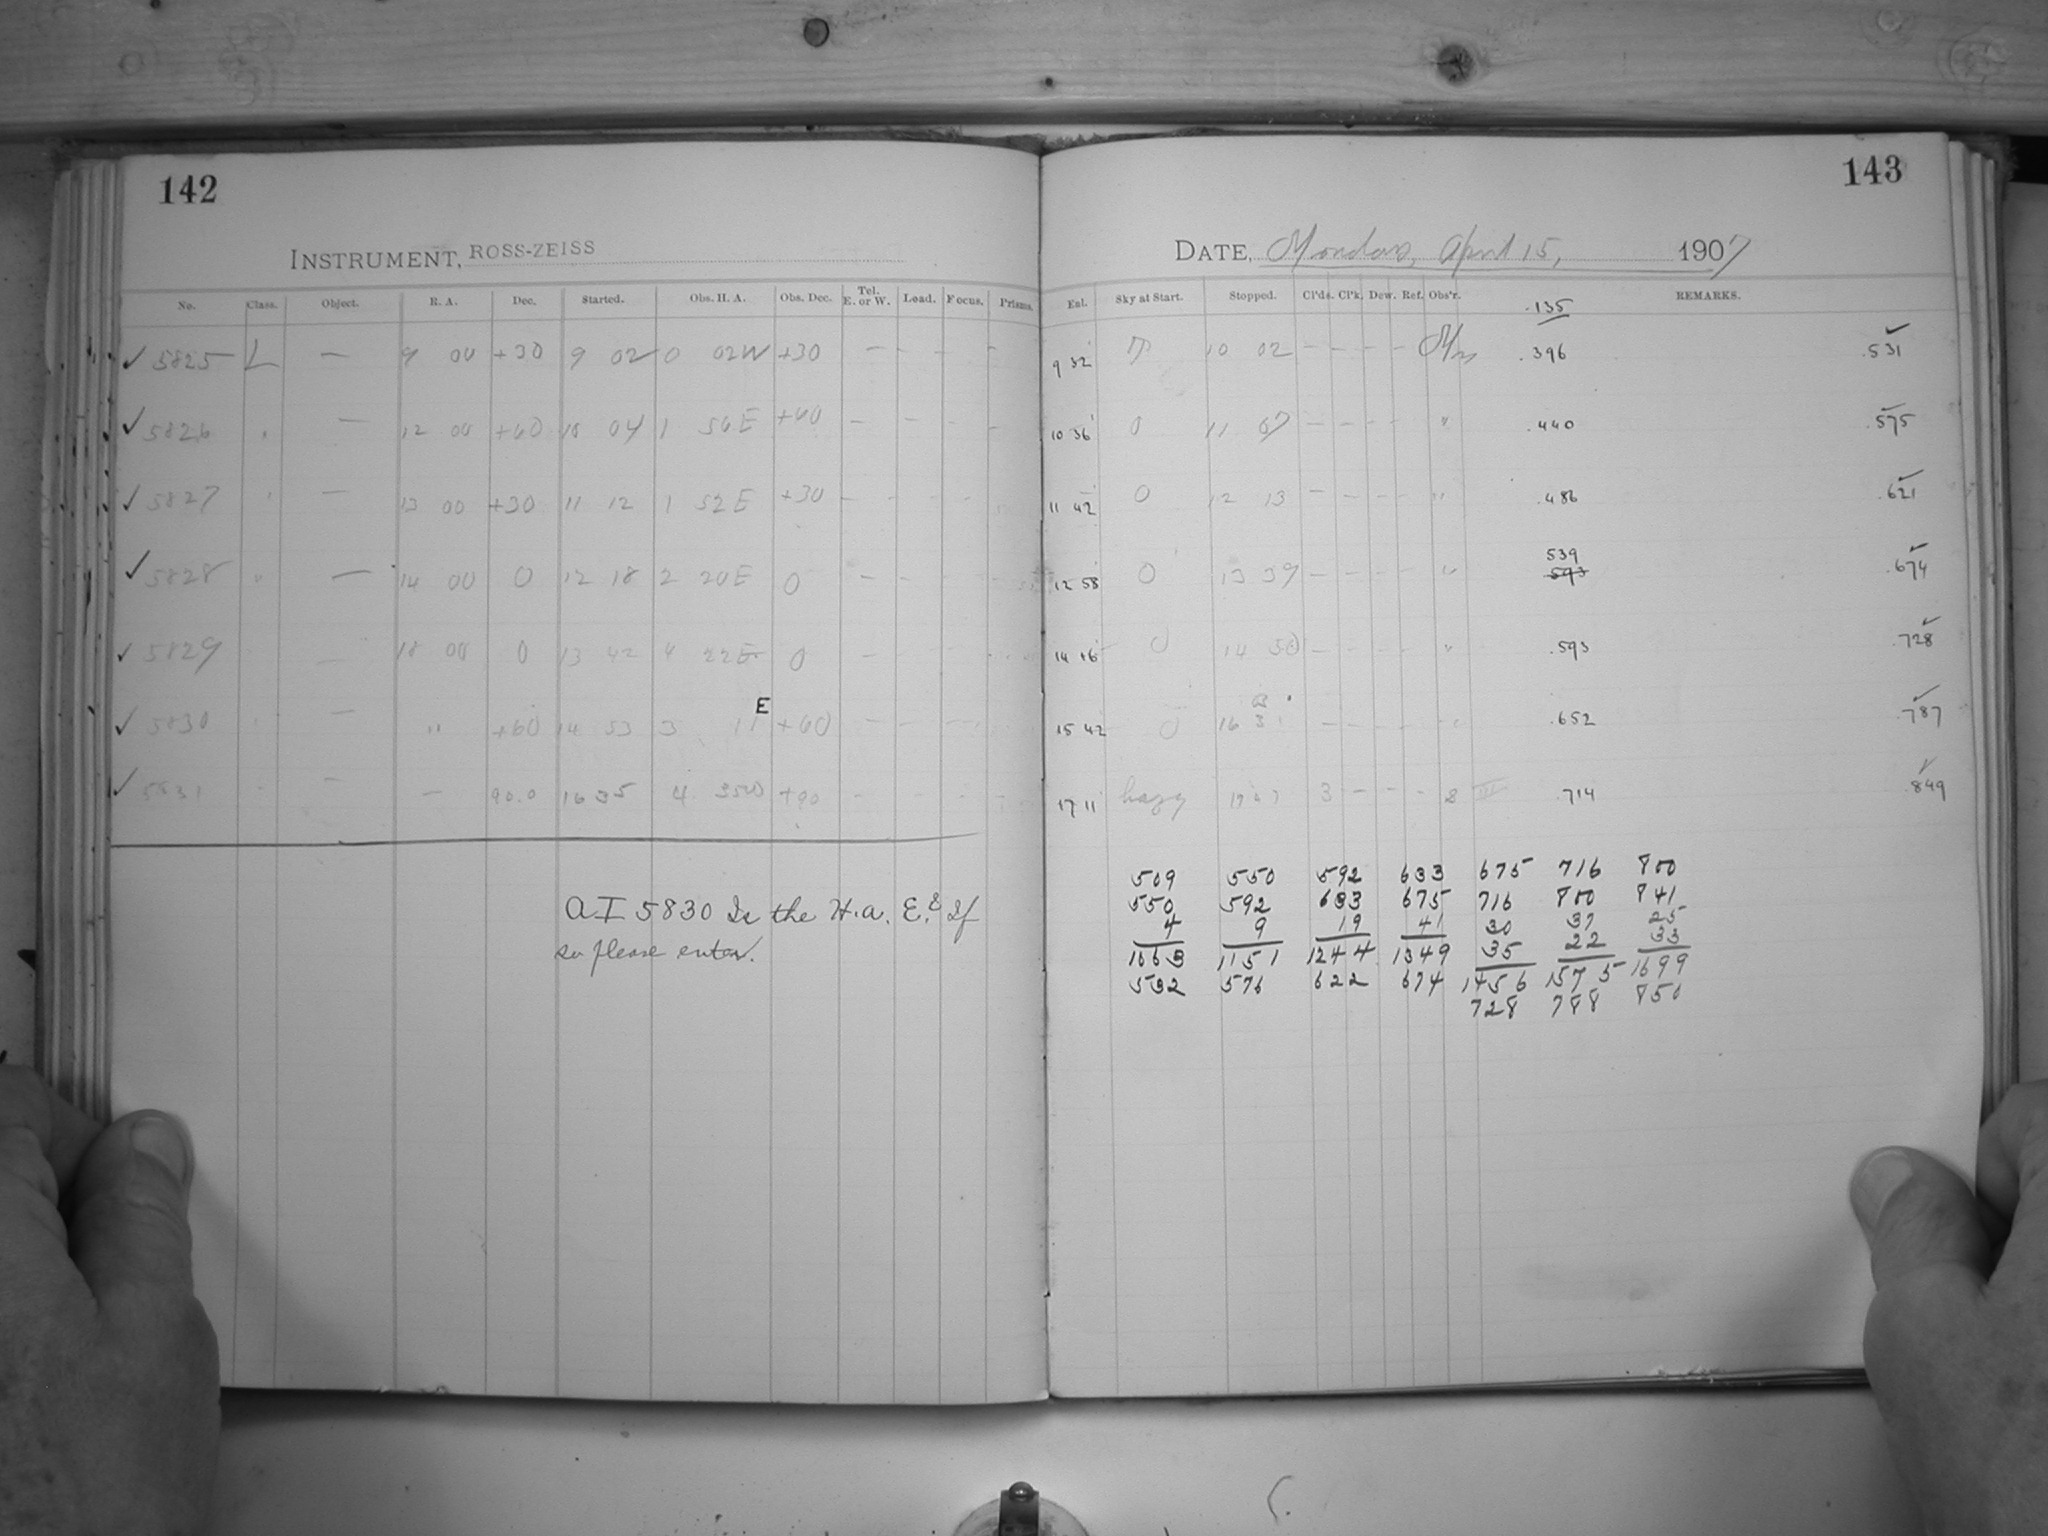 142
143
INSTRUMENT, ROSS-ZEISS
DATE, Monday, April 15, 1907
No. Class. Object. R. A. Dec. Started. Obs. H. A. Obs. Dec. Tel. E. or W. Load. Focus. Prisms. Ext. Sky at Start. Stopped. Cl'ds. Cl'k. Dew. Ref. Obs'r. REMARKS.
.135
✓ 5825 L — 9 00 +30 9 02 0 02W +30 — — — — 9 32 10 02 — — — — .396 .531
✓ 5826 " — 12 00 +60 10 04 1 56E +60 — — — — 10 36 0 11 07 — — — — " .440 .575
✓ 5827 " — 13 00 +30 11 12 1 52E +30 — — — — 11 42 0 12 13 — — — — " .486 .621
539
✓ 5828 " — 14 00 0 12 18 2 20E 0 — — — — 12 58 0 13 39 — — — — " 593 .674
✓ 5829 — 18 00 0 13 42 4 22E 0 — — — 14 16 0 14 50 — — — — " .593 .728
E
✓ 5830 " — " +60 14 53 3 11 +60 — — — — 15 42 0 16 31 — — — — " .652 .787
✓ 5831 — — — 90.0 16 35 4 35W +90 — — — — 17 11 hazy 17 47 3 — — — .714 .849
509 550 592 633 675 716 800
550 592 633 675 716 800 841
4 9 19 41 30 37 25
35 22 33
1063 1151 1244 1349 1456 1575 1699
532 576 622 674 728 788 850
A I 5830 Is the H.A. E.? If
so please enter.